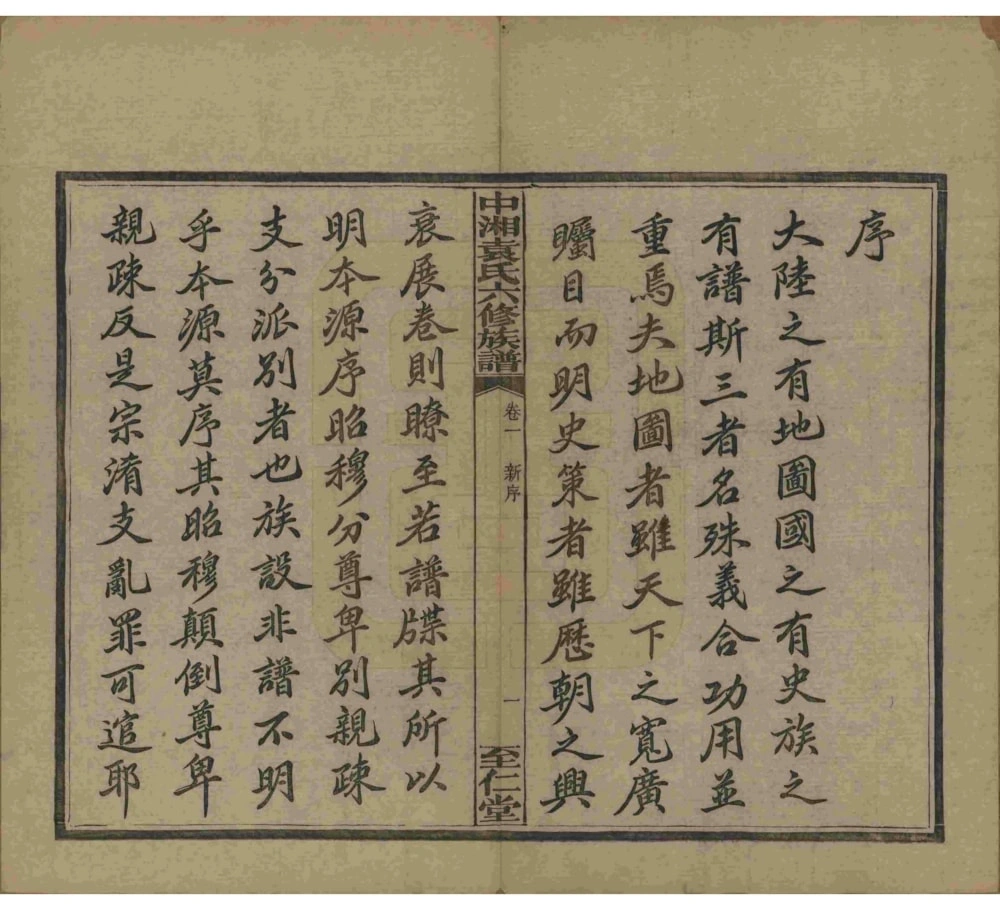 序
大陸之有地圖國之有史族之
有譜斯三者名殊義合功用並
重焉夫地圖者雖天下之寬廣
矚目而明史策者雖歷朝之興
中湘袁氏六修族譜
卷一
新序
一
至仁堂
衰展卷則瞭至若譜牒其所以
明本源序昭穆分尊卑別親疎
支分派別者也族設非譜不明
乎本源莫序其昭穆顛倒尊卑
親疎反是宗淆支亂罪可逭耶